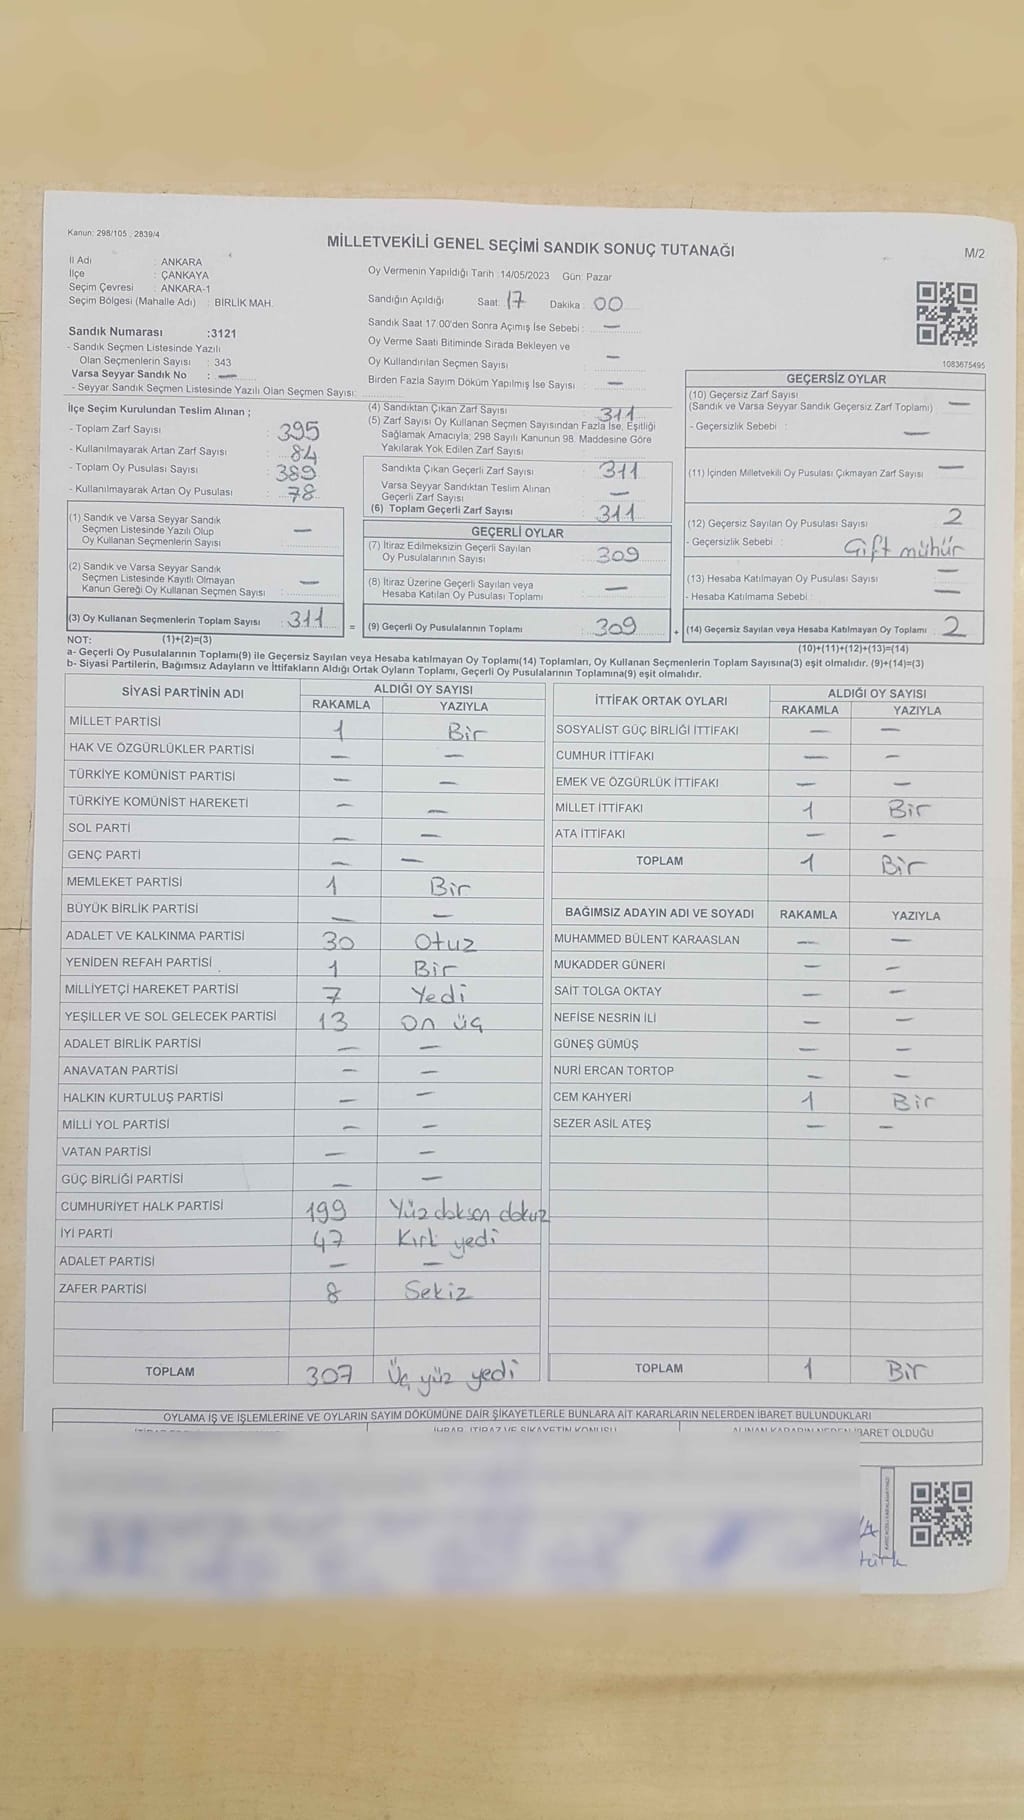 Kanun: 298/105 , 2839/4
MİLLETVEKİLİ GENEL SEÇİMİ SANDIK SONUÇ TUTANAĞI
M/2
İl Adı : ANKARA
İlçe : ÇANKAYA
Seçim Çevresi : ANKARA-1
Seçim Bölgesi (Mahalle Adı) : BİRLİK MAH.
Sandık Numarası :3121
- Sandık Seçmen Listesinde Yazılı
Olan Seçmenlerin Sayısı : 343
Varsa Seyyar Sandık No : —
- Seyyar Sandık Seçmen Listesinde Yazılı Olan Seçmen Sayısı:
Oy Vermenin Yapıldığı Tarih :14/05/2023 Gün: Pazar
Sandığın Açıldığı Saat: 17 Dakika : 00
Sandık Saat 17:00'den Sonra Açımış İse Sebebi : —
Oy Verme Saati Bitiminde Sırada Bekleyen ve
Oy Kullandırılan Seçmen Sayısı —
Birden Fazla Sayım Döküm Yapılmış İse Sayısı —
1083675495
İlçe Seçim Kurulundan Teslim Alınan ;
- Toplam Zarf Sayısı : 395
- Kullanılmayarak Artan Zarf Sayısı : 84
- Toplam Oy Pusulası Sayısı : 389
- Kullanılmayarak Artan Oy Pusulası : 78
(1) Sandık ve Varsa Seyyar Sandık
Seçmen Listesinde Yazılı Olup
Oy Kullanan Seçmenlerin Sayısı —
(2) Sandık ve Varsa Seyyar Sandık
Seçmen Listesinde Kayıtlı Olmayan
Kanun Gereği Oy Kullanan Seçmen Sayısı : —
(3) Oy Kullanan Seçmenlerin Toplam Sayısı : 311 =
(4) Sandıktan Çıkan Zarf Sayısı 311
(5) Zarf Sayısı Oy Kullanan Seçmen Sayısından Fazla İse, Eşitliği
Sağlamak Amacıyla; 298 Sayılı Kanunun 98. Maddesine Göre
Yakılarak Yok Edilen Zarf Sayısı
Sandıkta Çıkan Geçerli Zarf Sayısı 311
Varsa Seyyar Sandıktan Teslim Alınan
Geçerli Zarf Sayısı —
(6) Toplam Geçerli Zarf Sayısı 311
GEÇERLİ OYLAR
(7) İtiraz Edilmeksizin Geçerli Sayılan
Oy Pusulalarının Sayısı 309
(8) İtiraz Üzerine Geçerli Sayılan veya
Hesaba Katılan Oy Pusulası Toplamı —
(9) Geçerli Oy Pusulalarının Toplamı 309 +
GEÇERSİZ OYLAR
(10) Geçersiz Zarf Sayısı
(Sandık ve Varsa Seyyar Sandık Geçersiz Zarf Toplamı) —
- Geçersizlik Sebebi : —
(11) İçinden Milletvekili Oy Pusulası Çıkmayan Zarf Sayısı —
(12) Geçersiz Sayılan Oy Pusulası Sayısı 2
- Geçersizlik Sebebi : Çift mühür
(13) Hesaba Katılmayan Oy Pusulası Sayısı —
- Hesaba Katılmama Sebebi : —
(14) Geçersiz Sayılan veya Hesaba Katılmayan Oy Toplamı 2
NOT: (1)+(2)=(3)
(10)+(11)+(12)+(13)=(14)
a- Geçerli Oy Pusulalarının Toplamı(9) ile Geçersiz Sayılan veya Hesaba katılmayan Oy Toplamı(14) Toplamları, Oy Kullanan Seçmenlerin Toplam Sayısına(3) eşit olmalıdır. (9)+(14)=(3)
b- Siyasi Partilerin, Bağımsız Adayların ve İttifakların Aldığı Ortak Oyların Toplamı, Geçerli Oy Pusulalarının Toplamına(9) eşit olmalıdır.
SİYASİ PARTİNİN ADI ALDIĞI OY SAYISI
RAKAMLA YAZIYLA
MİLLET PARTİSİ 1 Bir
HAK VE ÖZGÜRLÜKLER PARTİSİ — —
TÜRKİYE KOMÜNİST PARTİSİ — —
TÜRKİYE KOMÜNİST HAREKETİ — —
SOL PARTİ — —
GENÇ PARTİ — —
MEMLEKET PARTİSİ 1 Bir
BÜYÜK BİRLİK PARTİSİ — —
ADALET VE KALKINMA PARTİSİ 30 Otuz
YENİDEN REFAH PARTİSİ 1 Bir
MİLLİYETÇİ HAREKET PARTİSİ 7 Yedi
YEŞİLLER VE SOL GELECEK PARTİSİ 13 On üç
ADALET BİRLİK PARTİSİ — —
ANAVATAN PARTİSİ — —
HALKIN KURTULUŞ PARTİSİ — —
MİLLİ YOL PARTİSİ — —
VATAN PARTİSİ — —
GÜÇ BİRLİĞİ PARTİSİ — —
CUMHURİYET HALK PARTİSİ 199 Yüz doksan dokuz
İYİ PARTİ 47 Kırk yedi
ADALET PARTİSİ — —
ZAFER PARTİSİ 8 Sekiz
TOPLAM 307 Üç yüz yedi
İTTİFAK ORTAK OYLARI ALDIĞI OY SAYISI
RAKAMLA YAZIYLA
SOSYALİST GÜÇ BİRLİĞİ İTTİFAKI — —
CUMHUR İTTİFAKI — —
EMEK VE ÖZGÜRLÜK İTTİFAKI — —
MİLLET İTTİFAKI 1 Bir
ATA İTTİFAKI — —
TOPLAM 1 Bir
BAĞIMSIZ ADAYIN ADI VE SOYADI RAKAMLA YAZIYLA
MUHAMMED BÜLENT KARAASLAN — —
MUKADDER GÜNERİ — —
SAİT TOLGA OKTAY — —
NEFİSE NESRİN İLİ — —
GÜNEŞ GÜMÜŞ — —
NURİ ERCAN TORTOP — —
CEM KAHYERİ 1 Bir
SEZER ASİL ATEŞ — —
TOPLAM 1 Bir
OYLAMA İŞ VE İŞLEMLERİNE VE OYLARIN SAYIM DÖKÜMÜNE DAİR ŞİKAYETLERLE BUNLARA AİT KARARLARIN NELERDEN İBARET BULUNDUKLARI
İHBAR, İTİRAZ VE ŞİKAYETİN KONUSU
türk